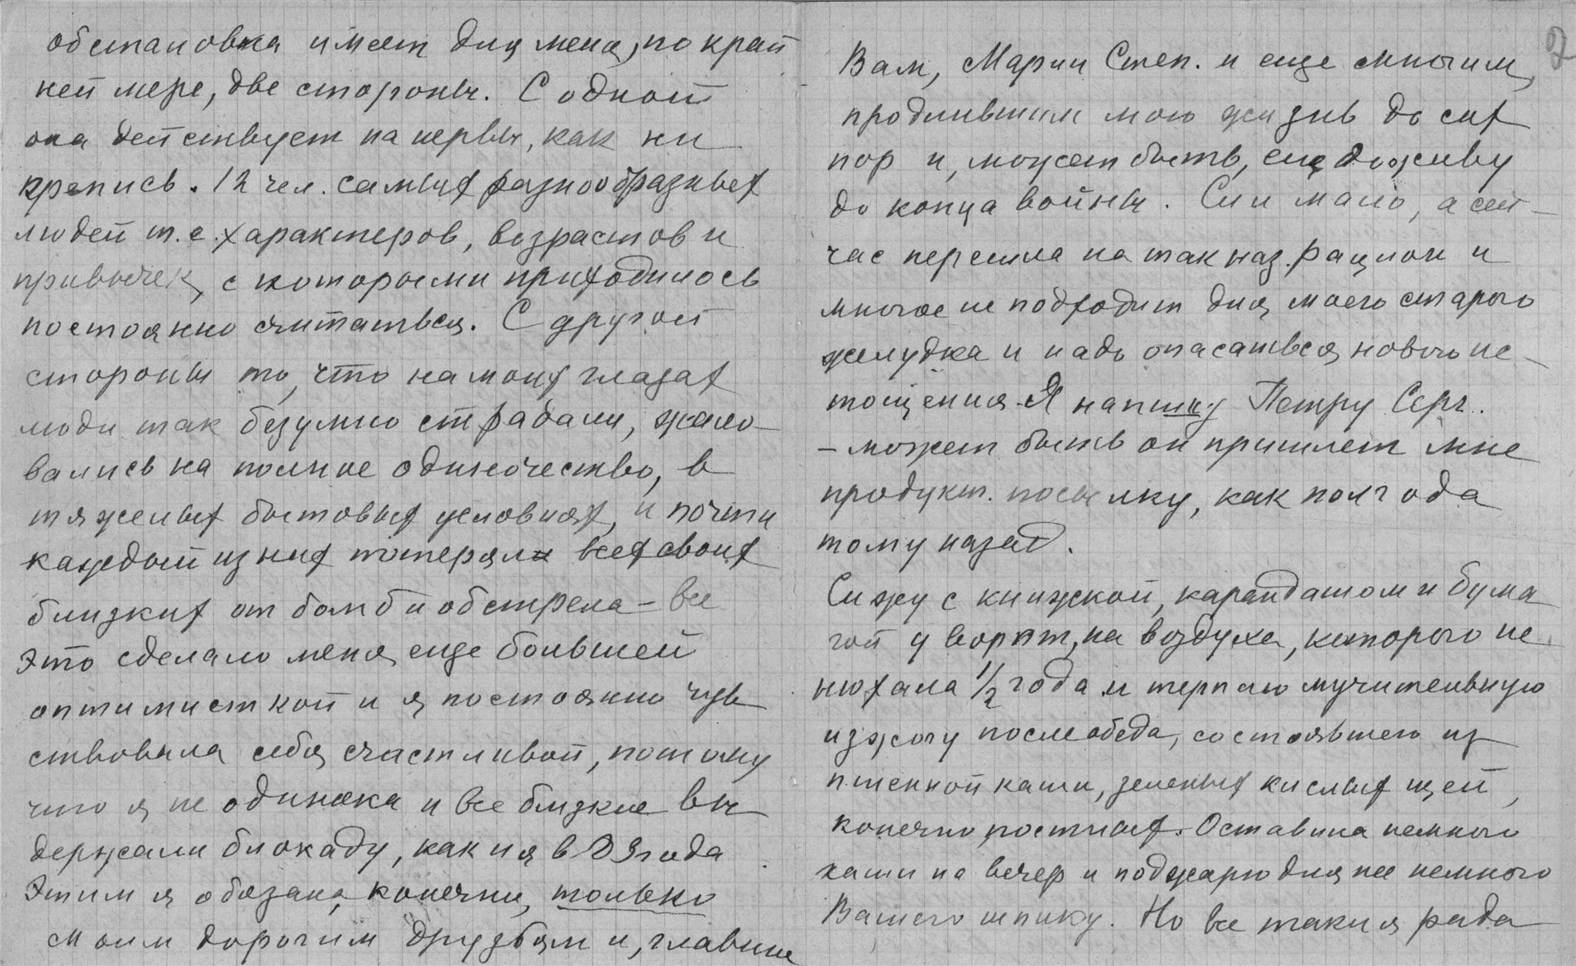 обстановка имеет для меня, по край
ней мере, две стороны. С одной
она действует на нервы, как ни
крепись. 12 чел. самых разнообразных
людей т.е. характеров, возрастов и
привычек, с которыми приходилось
постоянно считаться. С другой
стороны то, что на моих глазах
люди так безумно страдали, жало-
вались на полное одиночество, в
тяжелых бытовых условиях, и почти
каждый из них потерял всех своих
близких от бомб и обстрела – все
это сделало меня еще большей
оптимисткой и я постоянно чув
ствовала себя счастливой, потому
что я не одинока и все близкие вы
держали блокаду, как и я в 73 года
Этим я обязана, конечно, только
моим дорогим друзьям и, главное
Вам, Марии Степ. и еще многим,
продлившим мою жизнь до сих
пор и, может быть, еще доживу
до конца войны. Сил мало, а сей-
час перешла на так наз. рацион и
многое не подходит для моего старого
желудка и надо опасаться нового ис-
тощения. Я напишу Петру Серг.
– может быть он пришлет мне
продукт. посылку, как полгода
тому назад.
Сижу с книжкой, карандашом и бума
гой у ворот, на воздухе, которого не
нюхала 1/2 года и терплю мучительную
изжогу после обеда, состоявшего из
пшенной каши, зеленых кислых щей,
конечно постных. Оставила немного
каши на вечер и поджарю для нее немного
Вашего шпику. Но все таки я рада